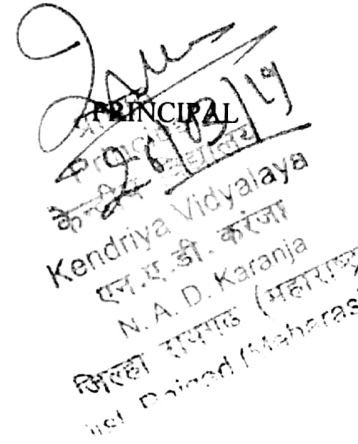 PRINCIPAL
Principal
केन्द्रीय विद्यालय
Kendriya Vidyalaya
एन.ए.डी. करंजा
N. A. D. Karanja
जिल्हा रायगड (महाराष्ट्र
Raigad (Maharas